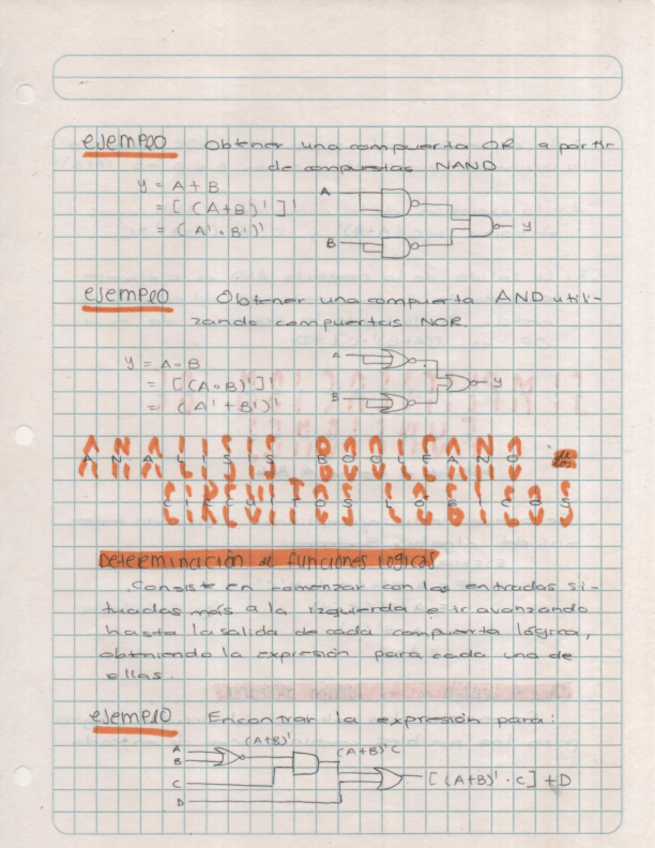 ejemplo Obtener una compuerta OR a partir
de compuertas NAND
y = A + B
= [ (A+B)' ]'
= (A' • B')'
A
B
y
ejemplo Obtener una compuerta AND utili-
zando compuertas NOR.
y = A • B
= [(A • B)']'
= (A' + B')'
A
B
y
ANALISIS BOOLEANO de los
CIRCUITOS LOGICOS
Determinación de funciones logicas
Consiste en comenzar con las entradas si-
tuadas más a la izquierda e ir avanzando
hasta la salida de cada compuerta lógica,
obteniendo la expresión para cada una de
ellas.
ejemplo Encontrar la expresión para:
A
B
(A+B)'
(A+B)'C
C
D
[(A+B)' · C] + D